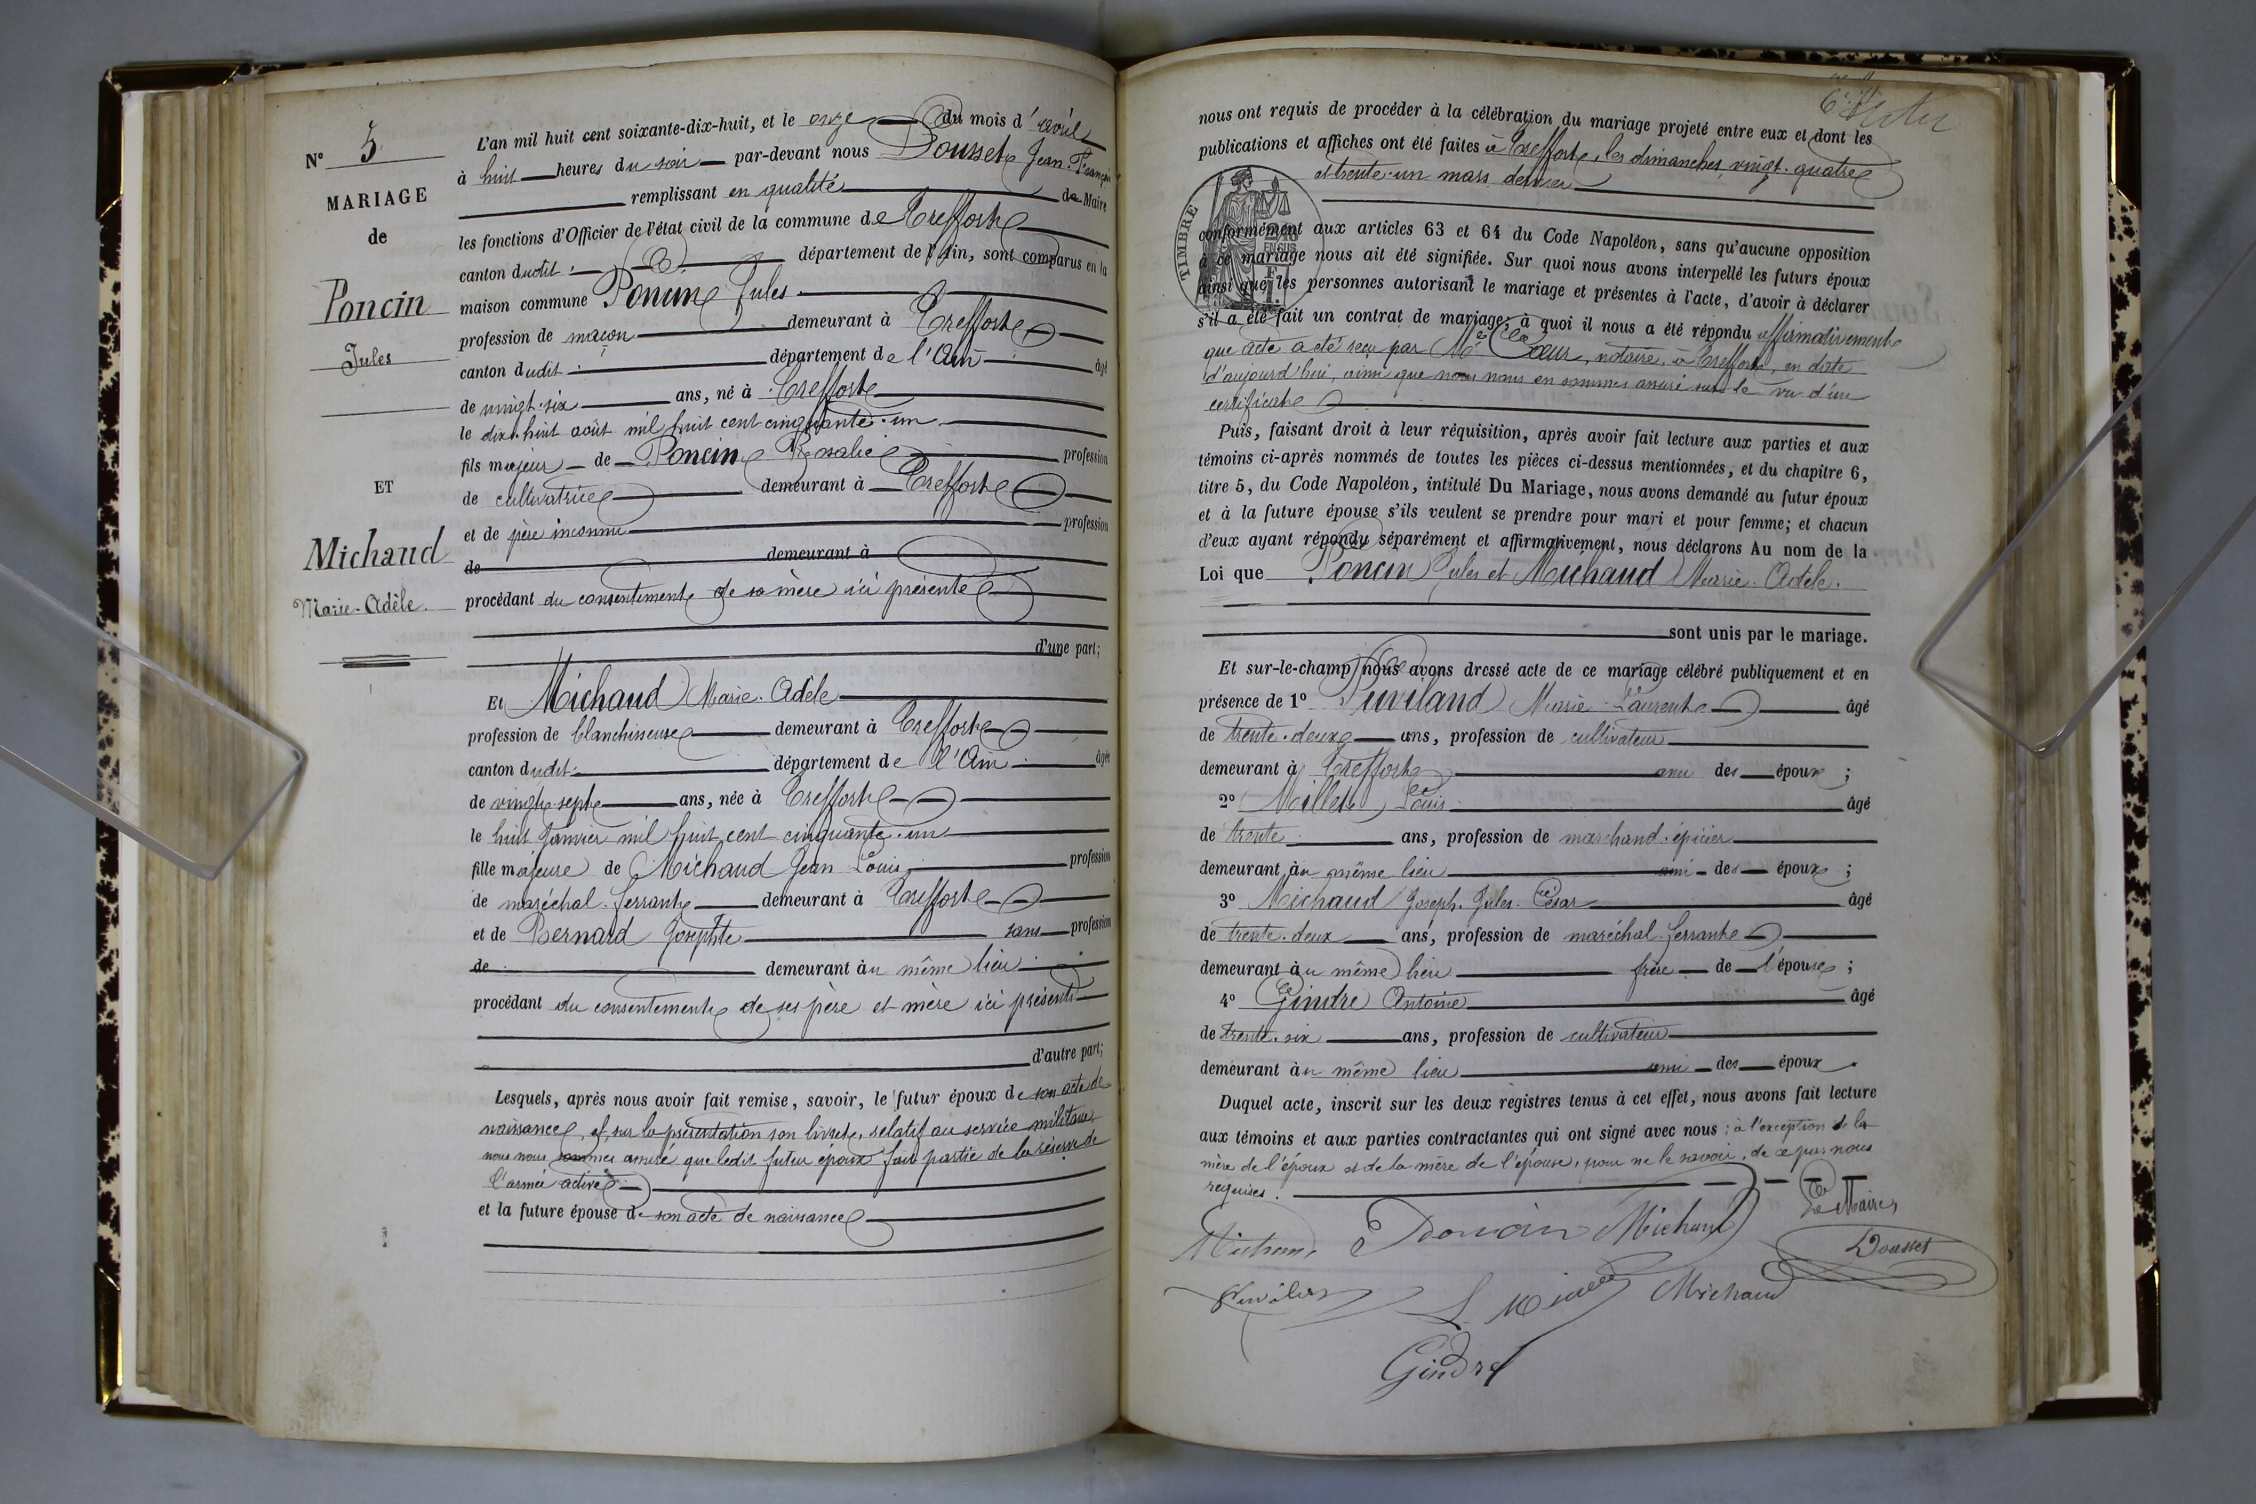 N° 5
MARIAGE
de
Poncin
Jules
ET
Michaud
Marie-Adèle.
L'an mil huit cent soixante-dix-huit, et le onze du mois d'avril
à huit heures du soir par-devant nous Dousset Jean-François
remplissant en qualité de Maire
les fonctions d'Officier de l'état civil de la commune de Treffort
canton dudit département de l'Ain, sont comparus en la
maison commune Poncin Jules
profession de maçon demeurant à Treffort
canton dudit département de l'Ain âgé
de vingt-six ans, né à Treffort
le dix-huit août mil huit cent cinquante-un
fils majeur de Poncin Rosalie profession
de cultivatrice demeurant à Treffort
et de père inconnu profession
de demeurant à
procédant du consentement de sa mère ici présente
d'une part;
Et Michaud Marie-Adèle
profession de blanchisseuse demeurant à Treffort
canton dudit département de l'Ain âgée
de vingt-sept ans, née à Treffort
le huit janvier mil huit cent cinquante-un
fille majeure de Michaud Jean Louis profession
de maréchal-ferrant demeurant à Treffort
et de Bernard Josephte sans profession
de demeurant au même lieu
procédant du consentement de ses père et mère ici présents
d'autre part;
Lesquels, après nous avoir fait remise, savoir, le futur époux de son acte de
naissance, et, sur la présentation son livret, relatif au service militaire
nous nous sommes assuré que ledit futur époux fait partie de la réserve de
l'armée active
et la future épouse de son acte de naissance
nous ont requis de procéder à la célébration du mariage projeté entre eux et dont les
publications et affiches ont été faites à Treffort, les dimanches vingt-quatre
et trente-un mars dernier
TIMBRE
conformément aux articles 63 et 64 du Code Napoléon, sans qu'aucune opposition
à ce mariage nous ait été signifiée. Sur quoi nous avons interpellé les futurs époux
ainsi que les personnes autorisant le mariage et présentes à l'acte, d'avoir à déclarer
s'il a été fait un contrat de mariage; à quoi il nous a été répondu affirmativement
que acte a été reçu par Me Cœur, notaire, à Treffort, en date
d'aujourd'hui, ainsi que nous nous en sommes assuré sur le vu d'un
certificat
Puis, faisant droit à leur réquisition, après avoir fait lecture aux parties et aux
témoins ci-après nommés de toutes les pièces ci-dessus mentionnées, et du chapitre 6,
titre 5, du Code Napoléon, intitulé Du Mariage, nous avons demandé au futur époux
et à la future épouse s'ils veulent se prendre pour mari et pour femme; et chacun
d'eux ayant répondu séparément et affirmativement, nous déclarons Au nom de la
Loi que Poncin Jules et Michaud Marie-Adèle.
sont unis par le mariage.
Et sur-le-champ nous avons dressé acte de ce mariage célébré publiquement et en
présence de 1° Puvilland Marie-Laurent âgé
de trente-deux ans, profession de cultivateur
demeurant à Treffort ami des époux;
2° Millet Louis âgé
de trente ans, profession de marchand-épicier
demeurant au même lieu ami des époux;
3° Michaud Joseph-Jules-César âgé
de trente-deux ans, profession de maréchal-ferrant
demeurant au même lieu frère de l'épouse;
4° Gindre Antoine âgé
de trente-six ans, profession de cultivateur
demeurant au même lieu ami des époux.
Duquel acte, inscrit sur les deux registres tenus à cet effet, nous avons fait lecture
aux témoins et aux parties contractantes qui ont signé avec nous; à l'exception de la
mère de l'époux et de la mère de l'épouse, pour ne le savoir, de ce par nous
requises.
Le Maire,
Michaud Poncin Michaud Dousset
Michaud
Gindre